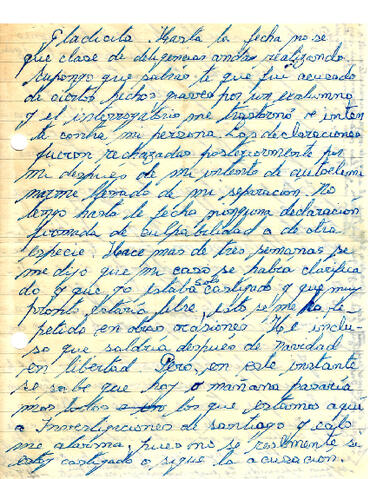 Gladicita. Hasta la fecha no se
que clase de diligencias andas realizando
supongo que sabrás te que fui acusado
de ciertos hechos graves por un exalumno
y el interrogatorio me trastornó e inten
té contra mi persona. Las declaraciones
fueron rechazadas posteriormente por
mi despues de mi intento de autoelimi
narme de mi separacion. No
tengo hasta la fecha ninguna declaración
firmada de culpabilidad o de otra
especie. Hace mas de tres semanas se
me dijo que mi caso se habia clarifica
do y que yo estaba solo castigado y que muy
pronto estaria libre, esto se me ha re
petido en otras ocasiones. He inclu-
so que saldria despues de navidad
en libertad. Pero, en este instante
se sabe que hoy o mañana pasaria
mos todos los que estamos aqui
a Investigaciones de Santiago y esto
me alarma, pues no se realmente si
estoy castigado o sigue la acusación.